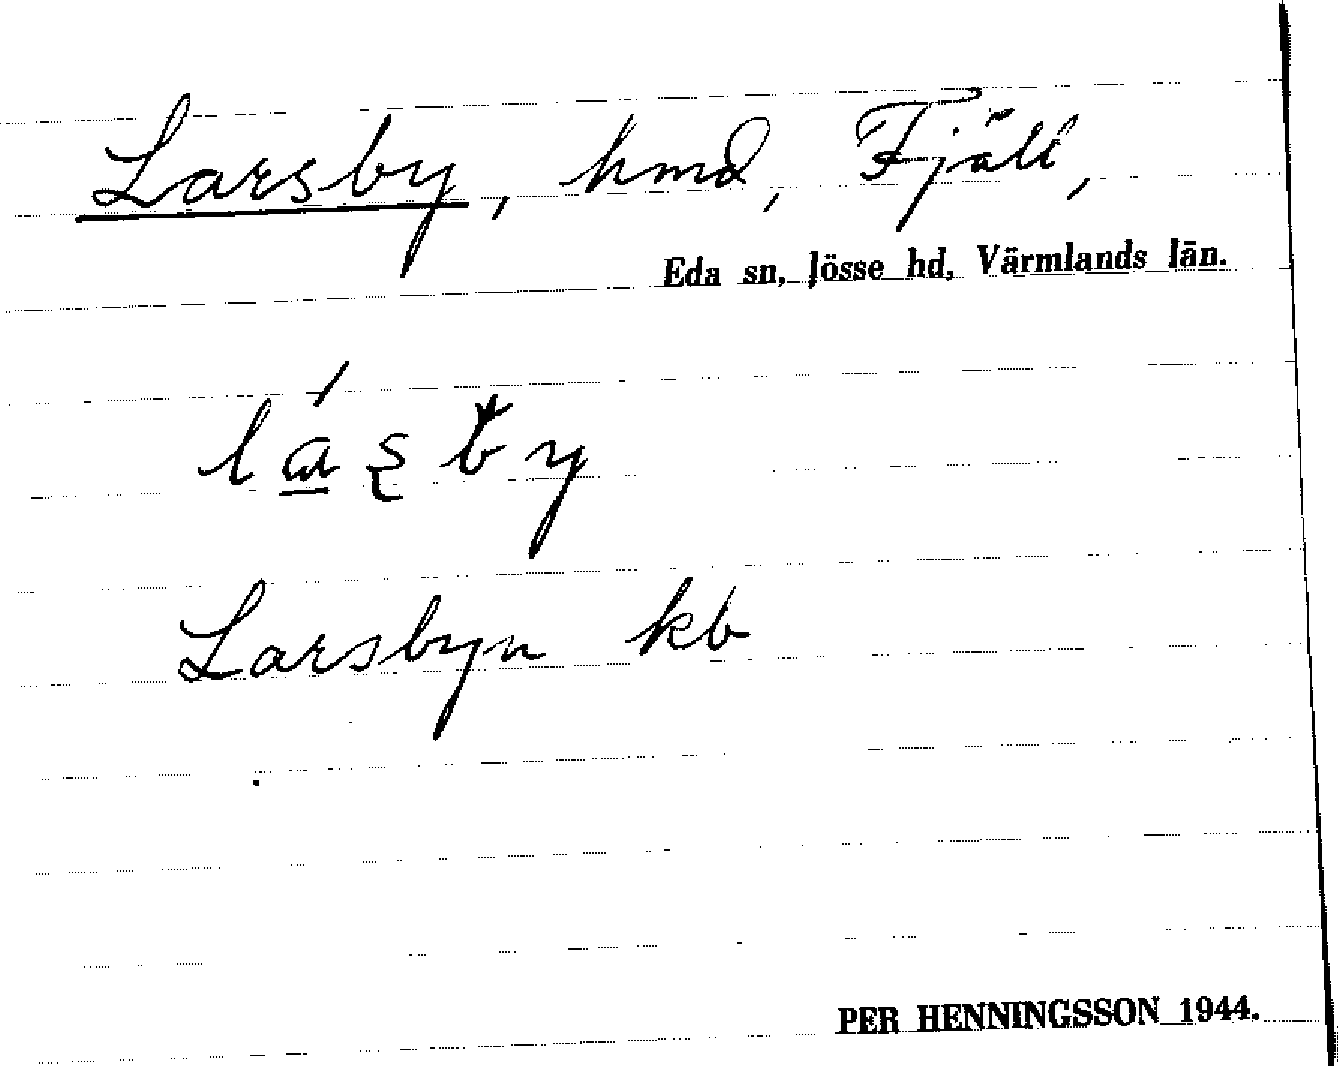 Larsby, hmd, Fjäll,
Eda sn, Jösse hd, Värmlands län.
lásby
Larsbyn kb
PER HENNINGSSON 1944.